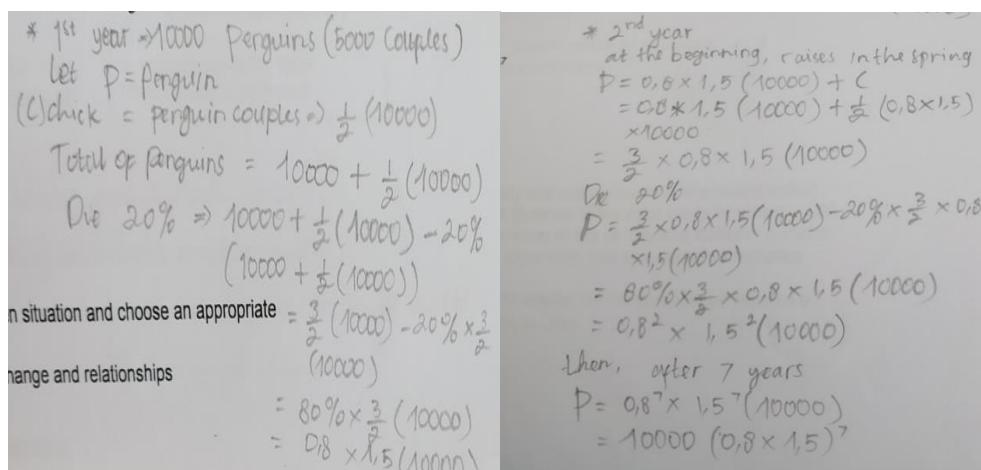 * 1st year => 10000 Penguins (5000 Couples)
Let P = Penguin
(C) chick = penguin couples => 1/2 (10000)
Total of Penguins = 10000 + 1/2 (10000)
Die 20% => 10000 + 1/2 (10000) - 20%
(10000 + 1/2 (10000))
n situation and choose an appropriate = 3/2 (10000) - 20% x 3/2
(10000)
hange and relationships
= 80% x 3/2 (10000)
= 0,8 x 1,5 (10000)
* 2nd year
at the beginning, raises in the spring
P = 0,8 x 1,5 (10000) + C
= 0,8 * 1,5 (10000) + 1/2 (0,8 x 1,5)
x 10000
= 3/2 x 0,8 x 1,5 (10000)
Die 20%
P = 3/2 x 0,8 x 1,5 (10000) - 20% x 3/2 x 0,8
x 1,5 (10000)
= 80% x 3/2 x 0,8 x 1,5 (10000)
= 0,8² x 1,5² (10000)
then, after 7 years
P = 0,8⁷ x 1,5⁷ (10000)
= 10000 (0,8 x 1,5)⁷